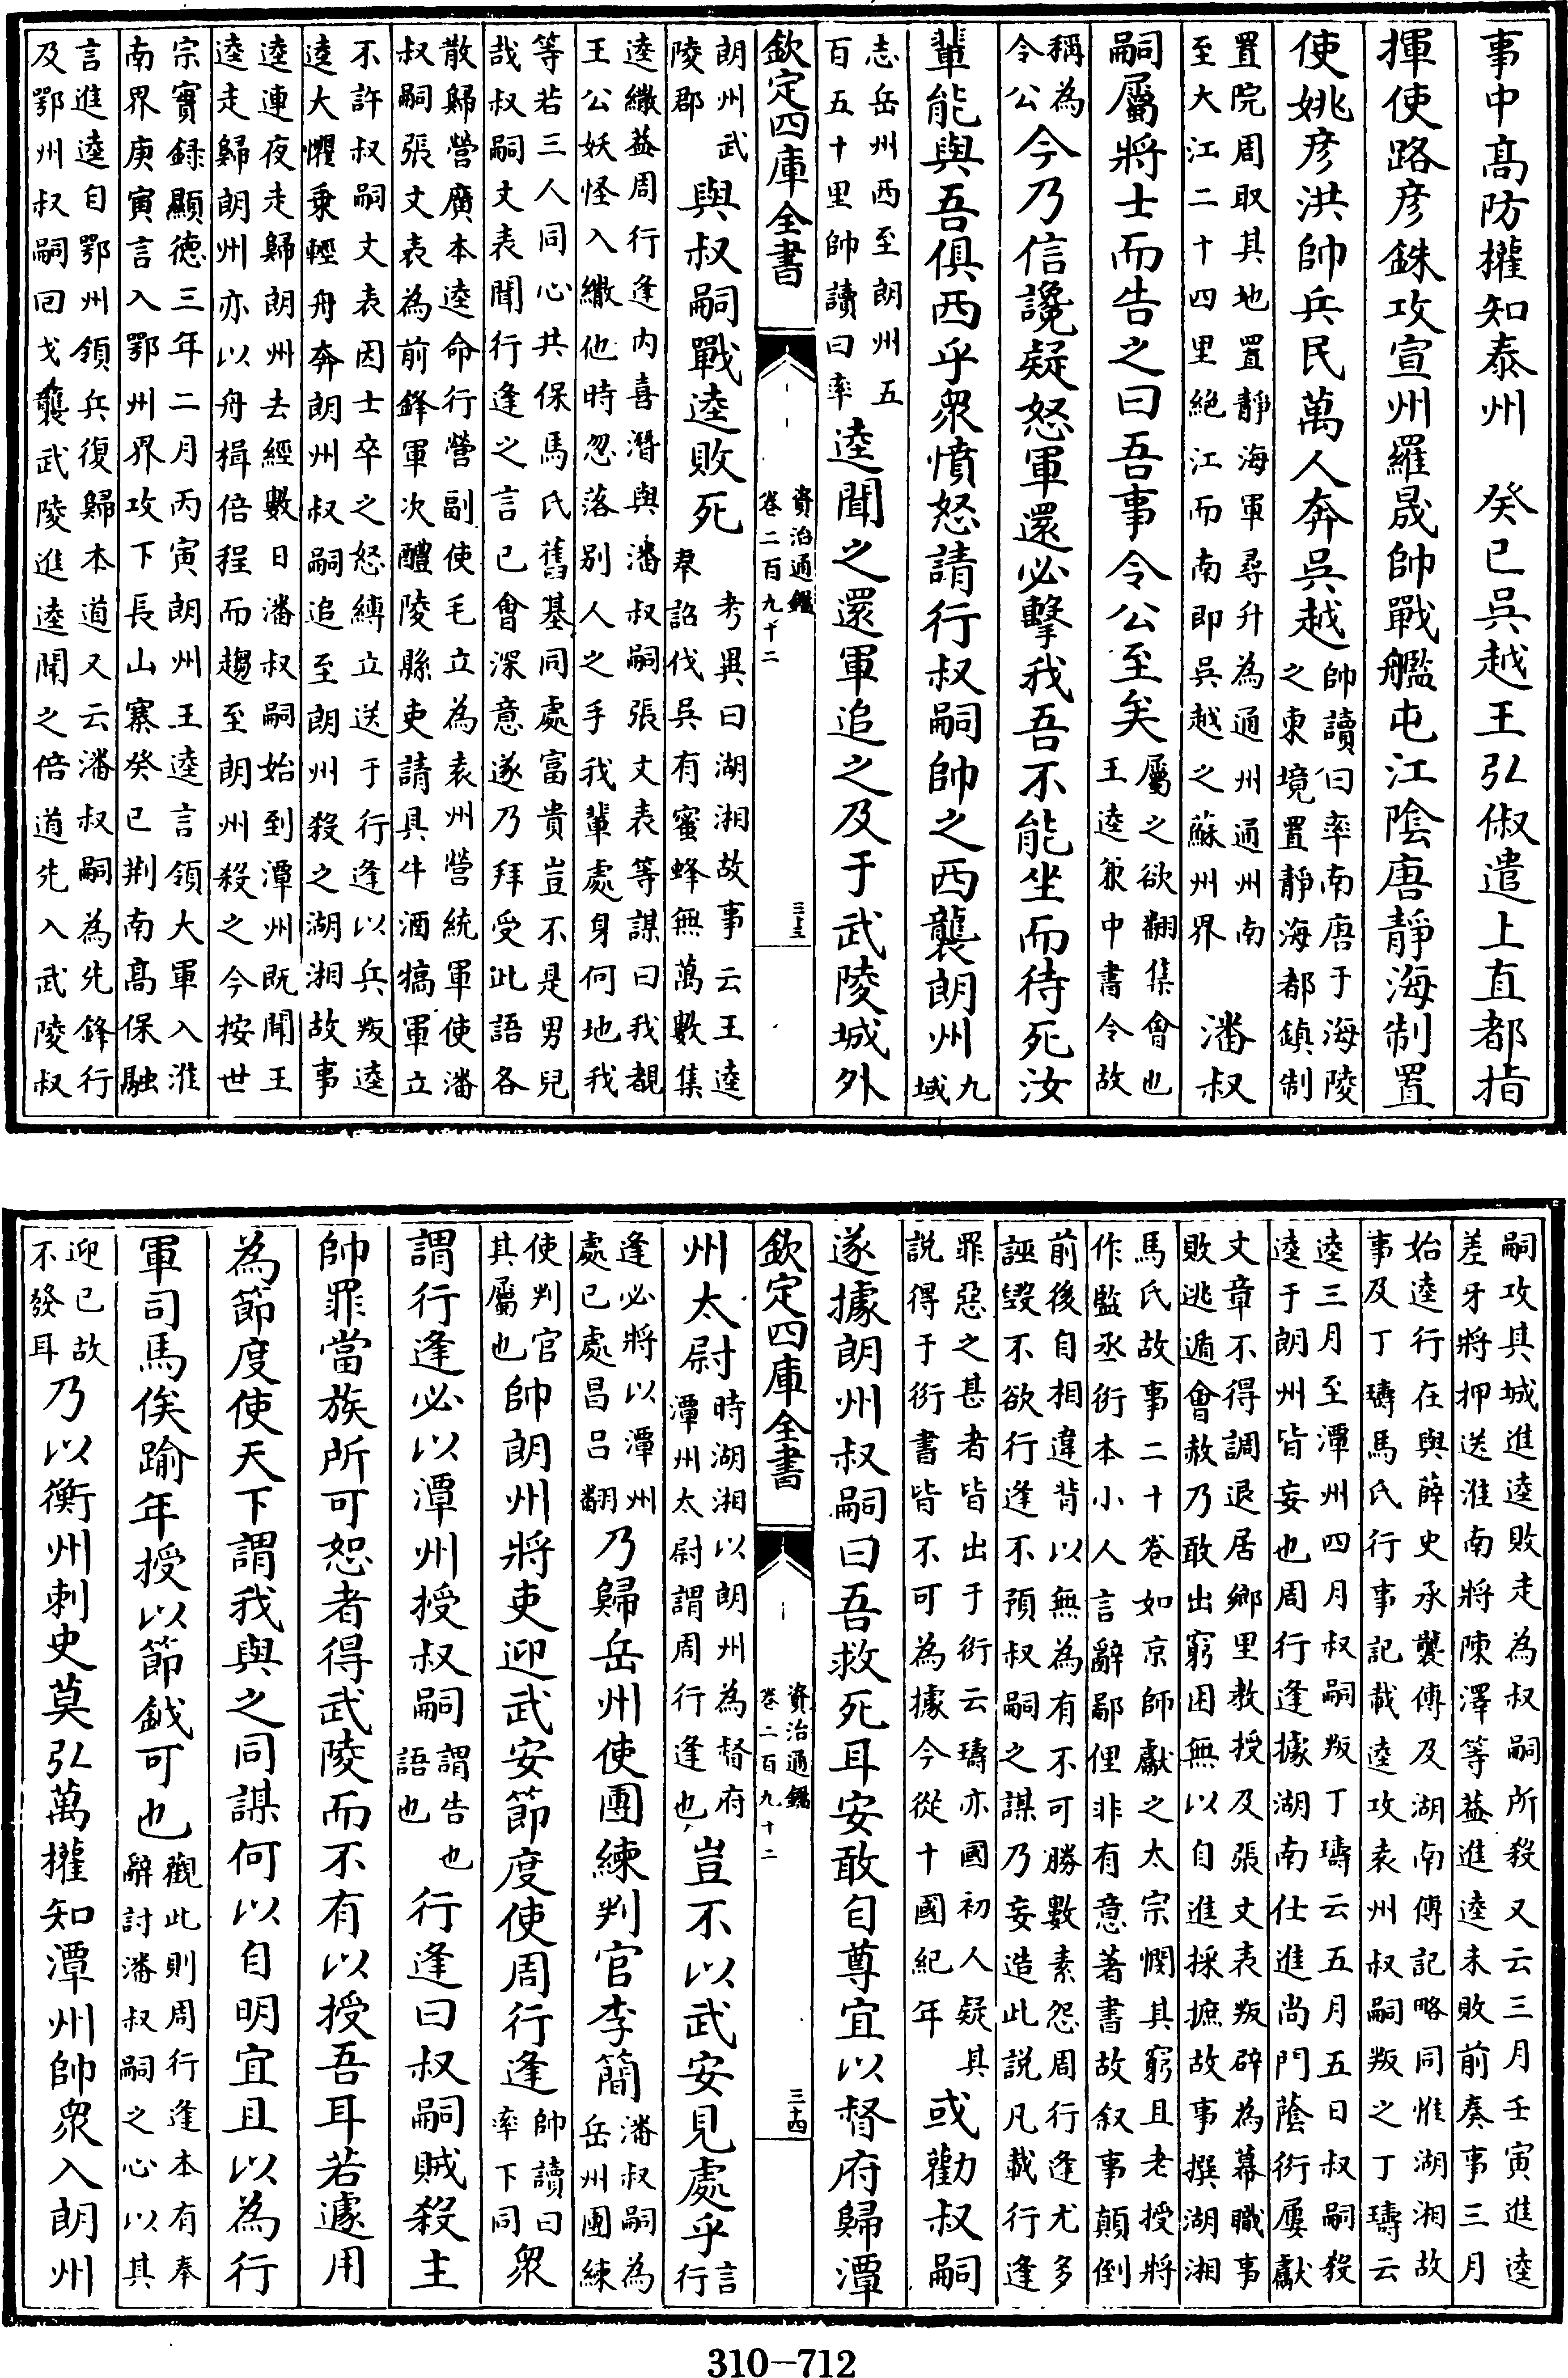 事中高防權知泰州　癸巳吳越王弘俶遣上直都指
揮使路彥銖攻宣州羅晟帥戰艦屯江陰唐靜海制置
使姚彥洪帥兵民萬人奔吳越帥讀曰率南唐于海陵
之東境置靜海都鎮制
置院周取其地置靜海軍尋升為通州通州南
至大江二十四里絕江而南即吳越之蘇州界　潘叔
嗣屬將士而告之曰吾事令公至矣屬之欲翻集會也
王逵兼中書令故
稱為
令公今乃信讒疑怒軍還必擊我吾不能坐而待死汝
輩能與吾俱西乎衆憤怒請行叔嗣帥之西襲朗州九
域
志岳州西至朗州五
百五十里帥讀曰率逵聞之還軍追之及于武陵城外
欽定四庫全書
資治通鑑
卷二百九十二
三十三
朗州武
陵郡與叔嗣戰逵敗死考異曰湖湘故事云王逵
奉詔伐吳有蜜蜂無萬數集
逵繖蓋周行逢内喜潛與潘叔嗣張文表等謀曰我覩
王公妖怪入繖他時忽落別人之手我輩處身何地我
等若三人同心共保馬氏舊基同處富貴豈不是男兒
哉叔嗣文表聞行逢之言已會深意遂乃拜受此語各
散歸營廣本逵命行營副使毛立為袁州營統軍使潘
叔嗣張文表為前鋒軍次醴陵縣吏請具牛酒犒軍立
不許叔嗣文表因士卒之怒縛立送于行逢以兵叛逵
逵大懼乗輕舟奔朗州叔嗣追至朗州殺之湖湘故事
逵連夜走歸朗州去經數日潘叔嗣始到潭州既聞王
逵走歸朗州亦以舟楫倍程而趨至朗州殺之今按世
宗實録顯德三年二月丙寅朗州王逵言領大軍入淮
南界庚寅言入鄂州界攻下長山寨癸巳荆南高保融
言進逵自鄂州領兵復歸本道又云潘叔嗣為先鋒行
及鄂州叔嗣回戈襲武陵進逵聞之倍道先入武陵叔
嗣攻其城進逵敗走為叔嗣所殺又云三月壬寅進逵
差牙將押送淮南將陳澤等蓋進逵未敗前奏事三月
始逵行在與薛史承襲傳及湖南傳記略同惟湖湘故
事及丁璹馬氏行事記載逵攻袁州叔嗣叛之丁璹云
逵三月至潭州四月叔嗣叛丁璹云五月五日叔嗣殺
逵于朗州皆妄也周行逢據湖南仕進尚門蔭衍屢獻
文章不得調退居鄉里教授及張文表叛辟為幕職事
敗逃遁會赦乃敢出窮困無以自進採摭故事撰湖湘
馬氏故事二十卷如京師獻之太宗憫其窮且老授將
作監丞衍本小人言辭鄙俚非有意著書故叙事顛倒
前後自相違背以無為有不可勝數素怨周行逢尤多
誣毀不欲行逢不預叔嗣之謀乃妄造此説凡載行逢
罪惡之甚者皆出于衍云璹亦國初人疑其
説得于衍書皆不可為據今從十國紀年　或勸叔嗣
遂據朗州叔嗣曰吾救死耳安敢自尊宜以督府歸潭
欽定四庫全書
資治通鑑
卷二百九十二
三十四
州太尉時湖湘以朗州為督府
潭州太尉謂周行逢也豈不以武安見處乎言
行
逢必將以潭州
處己處昌吕翻乃歸岳州使團練判官李簡潘叔嗣為
岳州團練
使判官
其屬也帥朗州將吏迎武安節度使周行逢帥讀曰
率下同衆
謂行逢必以潭州授叔嗣謂告也
語也行逢曰叔嗣賊殺主
帥罪當族所可恕者得武陵而不有以授吾耳若遽用
為節度使天下謂我與之同謀何以自明宜且以為行
軍司馬俟踰年授以節鉞可也觀此則周行逢本有奉
辭討潘叔嗣之心以其
迎己故
不發耳乃以衡州刺史莫弘萬權知潭州帥衆入朗州
310—712